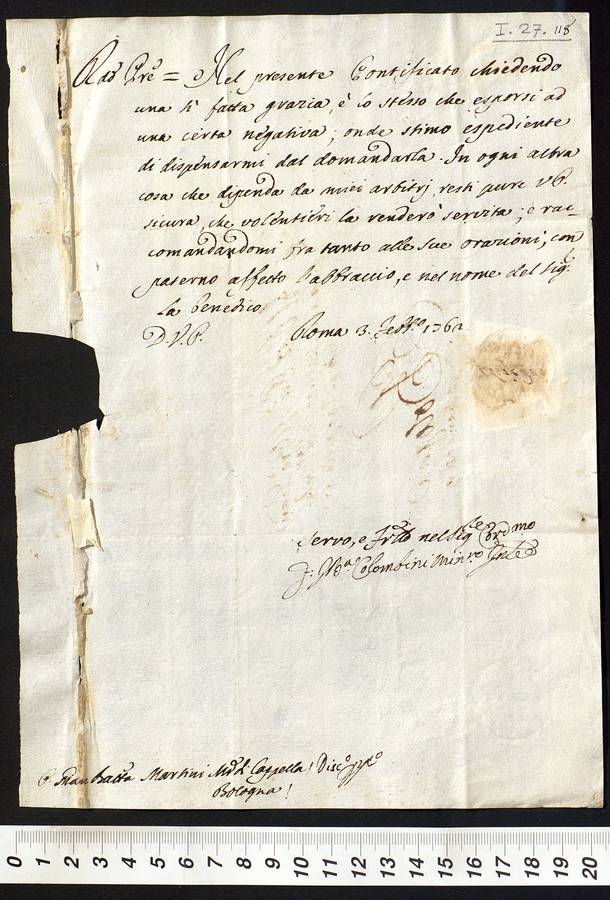 I. 27. 118
Rdo Pre = Nel presente Pontificato chiedendo
una sì fatta grazia, è lo stesso che esporsi ad
una certa negativa; onde stimo espediente
di dispensarmi dal domandarla. In ogni altra
cosa che dipenda da miei arbitrj, resti pure V P.
sicura, che volentieri la renderò servita; e rac-
comandandomi fra tanto alle sue orazioni, con
paterno affetto l'abbraccio, e nel nome del Sigr.
la benedico
D. V. P. Roma 3. Febbo. 1762
Servo, e nel Sigre
Colombini Minro
P. Giambatta Martini Mro di Cappella!
Bologna!
0 1 2 3 4 5 6 7 8 9 10 11 12 13 14 15 16 17 18 19 20